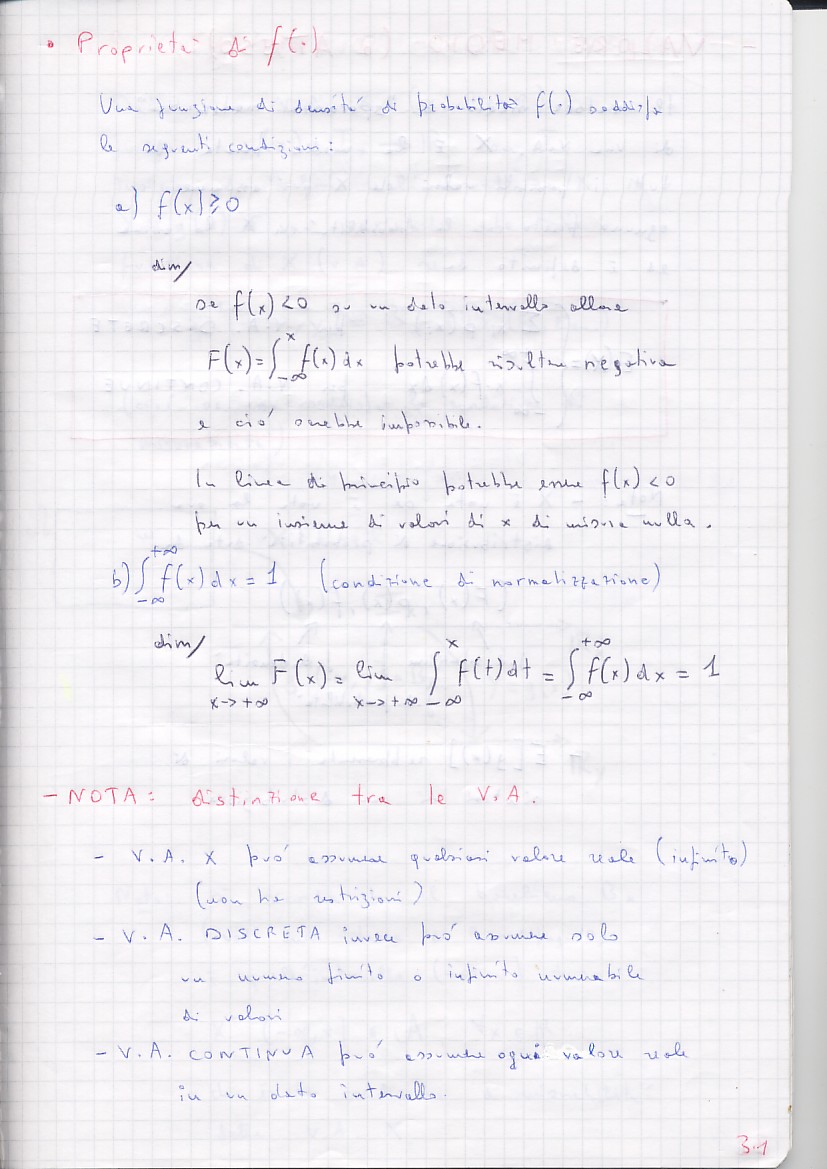 • Proprietà di f(·)
Una funzione di densità di probabilità f(·) soddisfa
le seguenti condizioni:
a) f(x) ⩾ 0
dim/
se f(x) < 0 su un dato intervallo allora
F(x) = ∫_{-∞}^{x} f(x) dx potrebbe risultare negativa
e ciò sarebbe impossibile.
In linea di principio potrebbe essere f(x) < 0
per un insieme di valori di x di misura nulla.
b) ∫_{-∞}^{+∞} f(x) dx = 1 (condizione di normalizzazione)
dim/
lim_{x->+∞} F(x) = lim_{x->+∞} ∫_{-∞}^{x} f(t) dt = ∫_{-∞}^{+∞} f(x) dx = 1
- NOTA: distinzione tra le V.A.
- V.A. X può assumere qualsiasi valore reale (infinito)
(non ha restrizioni)
- V.A. DISCRETA invece può assumere solo
un numero finito o infinito numerabile
di valori
- V.A. CONTINUA può assumere ogni valore reale
in un dato intervallo.
3.1